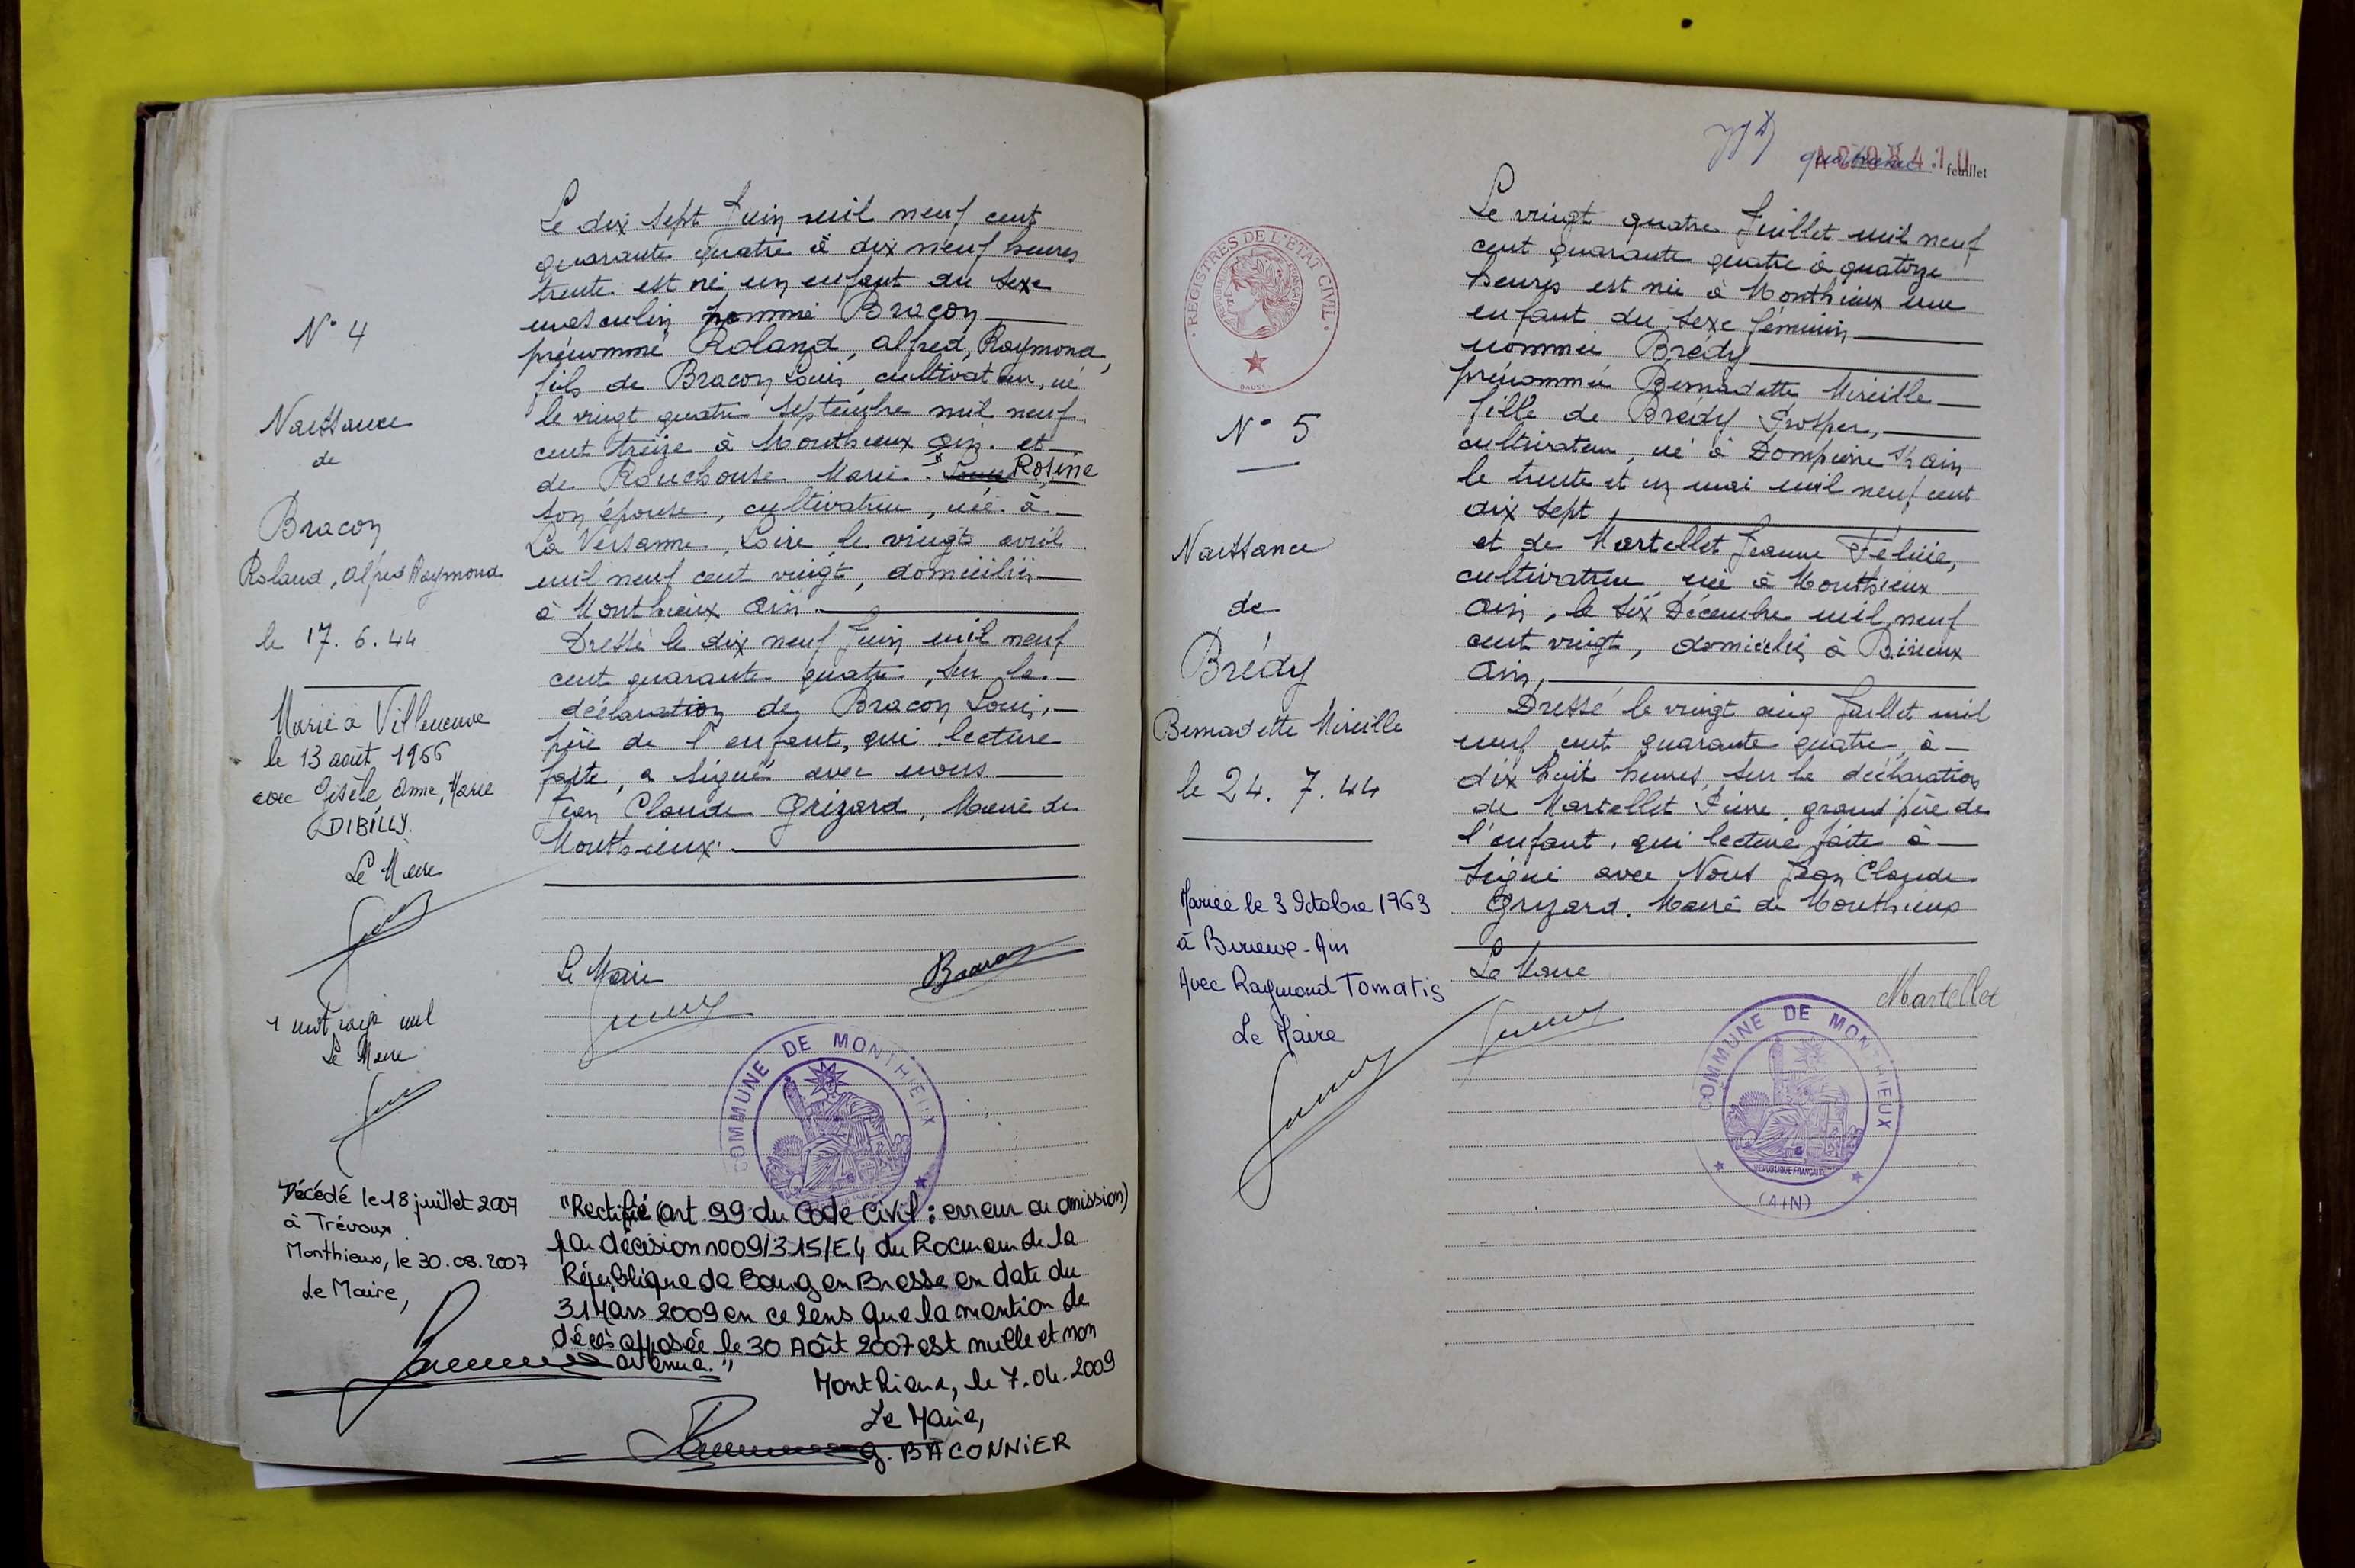 N° 4
Naissance
de
Bracon
Roland, Alfred Raymond
le 17. 6. 44
Marié à Villeneuve
le 13 août 1966
avec Gisèle, Anne, Marie
DIBILLY.
Le Maire
1 mot rayé nul
Le Maire
Décédé le 18 juillet 2007
à Trévoux
Monthieux, le 30.08.2007
Le Maire,
Le dix sept Juin mil neuf cent
quarante quatre à dix neuf heures
trente est né un enfant du sexe
masculin nommé Bracon
prénommé Roland, Alfred, Raymond,
fils de Bracon Louis, cultivateur, né
le vingt quatre Septembre mil neuf
cent treize à Monthieux Ain. et
de Rouchouse Marie Rosine
son épouse, cultivatrice, née à
La Versanne, Loire le vingt avril
mil neuf cent vingt, domiciliés
à Monthieux Ain.
Dressé le dix neuf Juin mil neuf
cent quarante quatre, sur la
déclaration de Bracon Louis,
père de l'enfant, qui lecture
faite, a signé avec nous
Jean Claude Grizard, Maire de
Monthieux.
Le Maire
Bracon
COMMUNE DE MONTHIEUX
"Rectifié (art 99 du Code Civil : erreur ou omission)
par décision n009/315/E4 du Procureur de la
République de Bourg en Bresse en date du
31 Mars 2009 en ce sens que la mention de
décès apposée le 30 Août 2007 est nulle et non
avenue."
Monthieux, le 7.04.2009
Le Maire,
G. BACONNIER
feuillet
REGISTRES DE L'ETAT CIVIL
N° 5
Naissance
de
Brédy
Bernadette Mireille
le 24. 7. 44
Mariée le 3 Octobre 1963
à Birieux - Ain
Avec Raymond Tomatis
Le Maire
Le vingt quatre Juillet mil neuf
cent quarante quatre à quatorze
heures est née à Monthieux une
enfant du sexe féminin
nommée Brédy
prénommée Bernadette Mireille
fille de Brédy Prosper,
cultivateur, né à Dompierre s/r Ain
le trente et un mai mil neuf cent
dix sept,
et de Martellet Jeanne Félicie,
cultivatrice née à Monthieux
Ain, le six Décembre mil neuf
cent vingt, domiciliés à Birieux
Ain,
Dressé le vingt cinq Juillet mil
neuf cent quarante quatre, à
dix huit heures, sur la déclaration
de Martellet Pierre, grand'père de
l'enfant, qui lecture faite à
signé avec Nous Jean Claude
Grizard. Maire de Monthieux
Le Maire
Martellet
COMMUNE DE MONTHIEUX
REPUBLIQUE FRANÇAISE
(AIN)